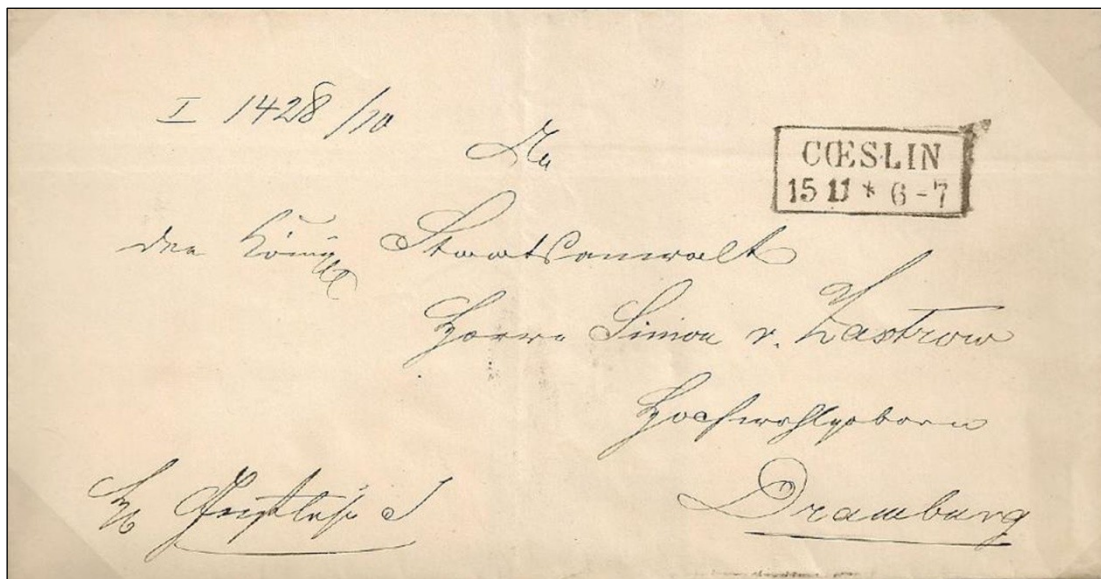 I 1428/10
An
CŒSLIN
15 11 * 6-7
den Königl
Staatsanwalt
Herrn Simon v. Zastrow
Hochwohlgeboren
Dramburg